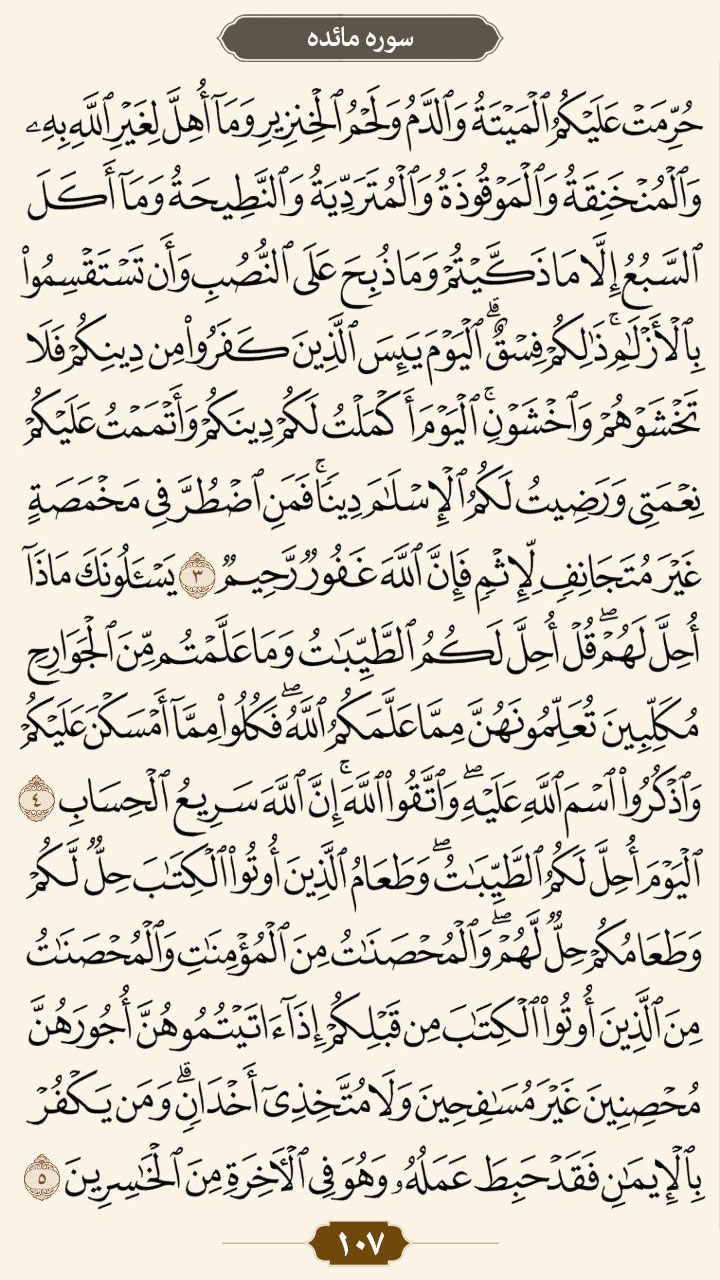 سوره مائده
حُرِّمَتْ عَلَيْكُمُ ٱلْمَيْتَةُ وَٱلدَّمُ وَلَحْمُ ٱلْخِنزِيرِ وَمَآ أُهِلَّ لِغَيْرِ ٱللَّهِ بِهِۦ
وَٱلْمُنْخَنِقَةُ وَٱلْمَوْقُوذَةُ وَٱلْمُتَرَدِّيَةُ وَٱلنَّطِيحَةُ وَمَآ أَكَلَ
ٱلسَّبُعُ إِلَّا مَا ذَكَّيْتُمْ وَمَا ذُبِحَ عَلَى ٱلنُّصُبِ وَأَن تَسْتَقْسِمُوا۟
بِٱلْأَزْلَـٰمِ ۚ ذَٰلِكُمْ فِسْقٌ ۗ ٱلْيَوْمَ يَئِسَ ٱلَّذِينَ كَفَرُوا۟ مِن دِينِكُمْ فَلَا
تَخْشَوْهُمْ وَٱخْشَوْنِ ۚ ٱلْيَوْمَ أَكْمَلْتُ لَكُمْ دِينَكُمْ وَأَتْمَمْتُ عَلَيْكُمْ
نِعْمَتِى وَرَضِيتُ لَكُمُ ٱلْإِسْلَـٰمَ دِينًا ۚ فَمَنِ ٱضْطُرَّ فِى مَخْمَصَةٍ
غَيْرَ مُتَجَانِفٍ لِّإِثْمٍ فَإِنَّ ٱللَّهَ غَفُورٌ رَّحِيمٌ ٣ يَسْـَٔلُونَكَ مَاذَآ
أُحِلَّ لَهُمْ ۖ قُلْ أُحِلَّ لَكُمُ ٱلطَّيِّبَـٰتُ وَمَا عَلَّمْتُم مِّنَ ٱلْجَوَارِحِ
مُكَلِّبِينَ تُعَلِّمُونَهُنَّ مِمَّا عَلَّمَكُمُ ٱللَّهُ ۖ فَكُلُوا۟ مِمَّآ أَمْسَكْنَ عَلَيْكُمْ
وَٱذْكُرُوا۟ ٱسْمَ ٱللَّهِ عَلَيْهِ ۖ وَٱتَّقُوا۟ ٱللَّهَ ۚ إِنَّ ٱللَّهَ سَرِيعُ ٱلْحِسَابِ ٤
ٱلْيَوْمَ أُحِلَّ لَكُمُ ٱلطَّيِّبَـٰتُ ۖ وَطَعَامُ ٱلَّذِينَ أُوتُوا۟ ٱلْكِتَـٰبَ حِلٌّ لَّكُمْ
وَطَعَامُكُمْ حِلٌّ لَّهُمْ ۖ وَٱلْمُحْصَنَـٰتُ مِنَ ٱلْمُؤْمِنَـٰتِ وَٱلْمُحْصَنَـٰتُ
مِنَ ٱلَّذِينَ أُوتُوا۟ ٱلْكِتَـٰبَ مِن قَبْلِكُمْ إِذَآ ءَاتَيْتُمُوهُنَّ أُجُورَهُنَّ
مُحْصِنِينَ غَيْرَ مُسَـٰفِحِينَ وَلَا مُتَّخِذِىٓ أَخْدَانٍ ۗ وَمَن يَكْفُرْ
بِٱلْإِيمَـٰنِ فَقَدْ حَبِطَ عَمَلُهُۥ وَهُوَ فِى ٱلْـَٔاخِرَةِ مِنَ ٱلْخَـٰسِرِينَ ٥
١٠٧